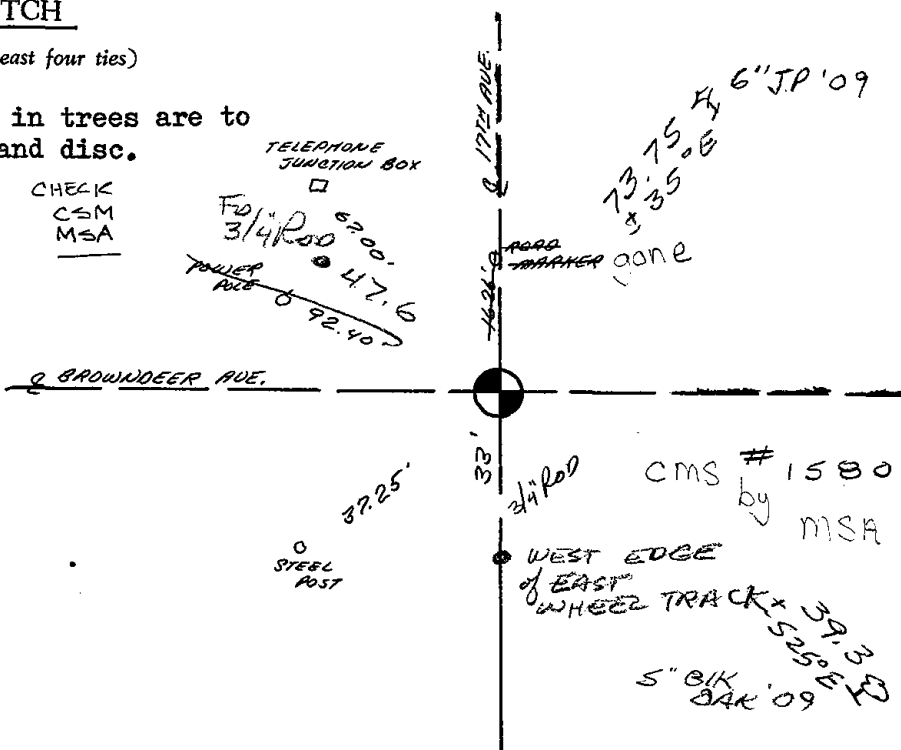 TCH
east four ties)
in trees are to
and disc.
CHECK
CSM
MSA
TELEPHONE
JUNCTION BOX
62.00'
FD
3/4" ROD
47.6
POWER
POLE
92.40
℄ 17TH AVE.
16.26'
ROAD
MARKER gone
73.75
35° E
6" J.P '09
℄ BROWNDEER AVE.
33'
3/4" ROD
37.25'
STEEL
POST
CMS # 1580
by
MSA
WEST EDGE
of EAST
WHEEL TRACK
39.3
S25°E
5" BlK
OAK '09